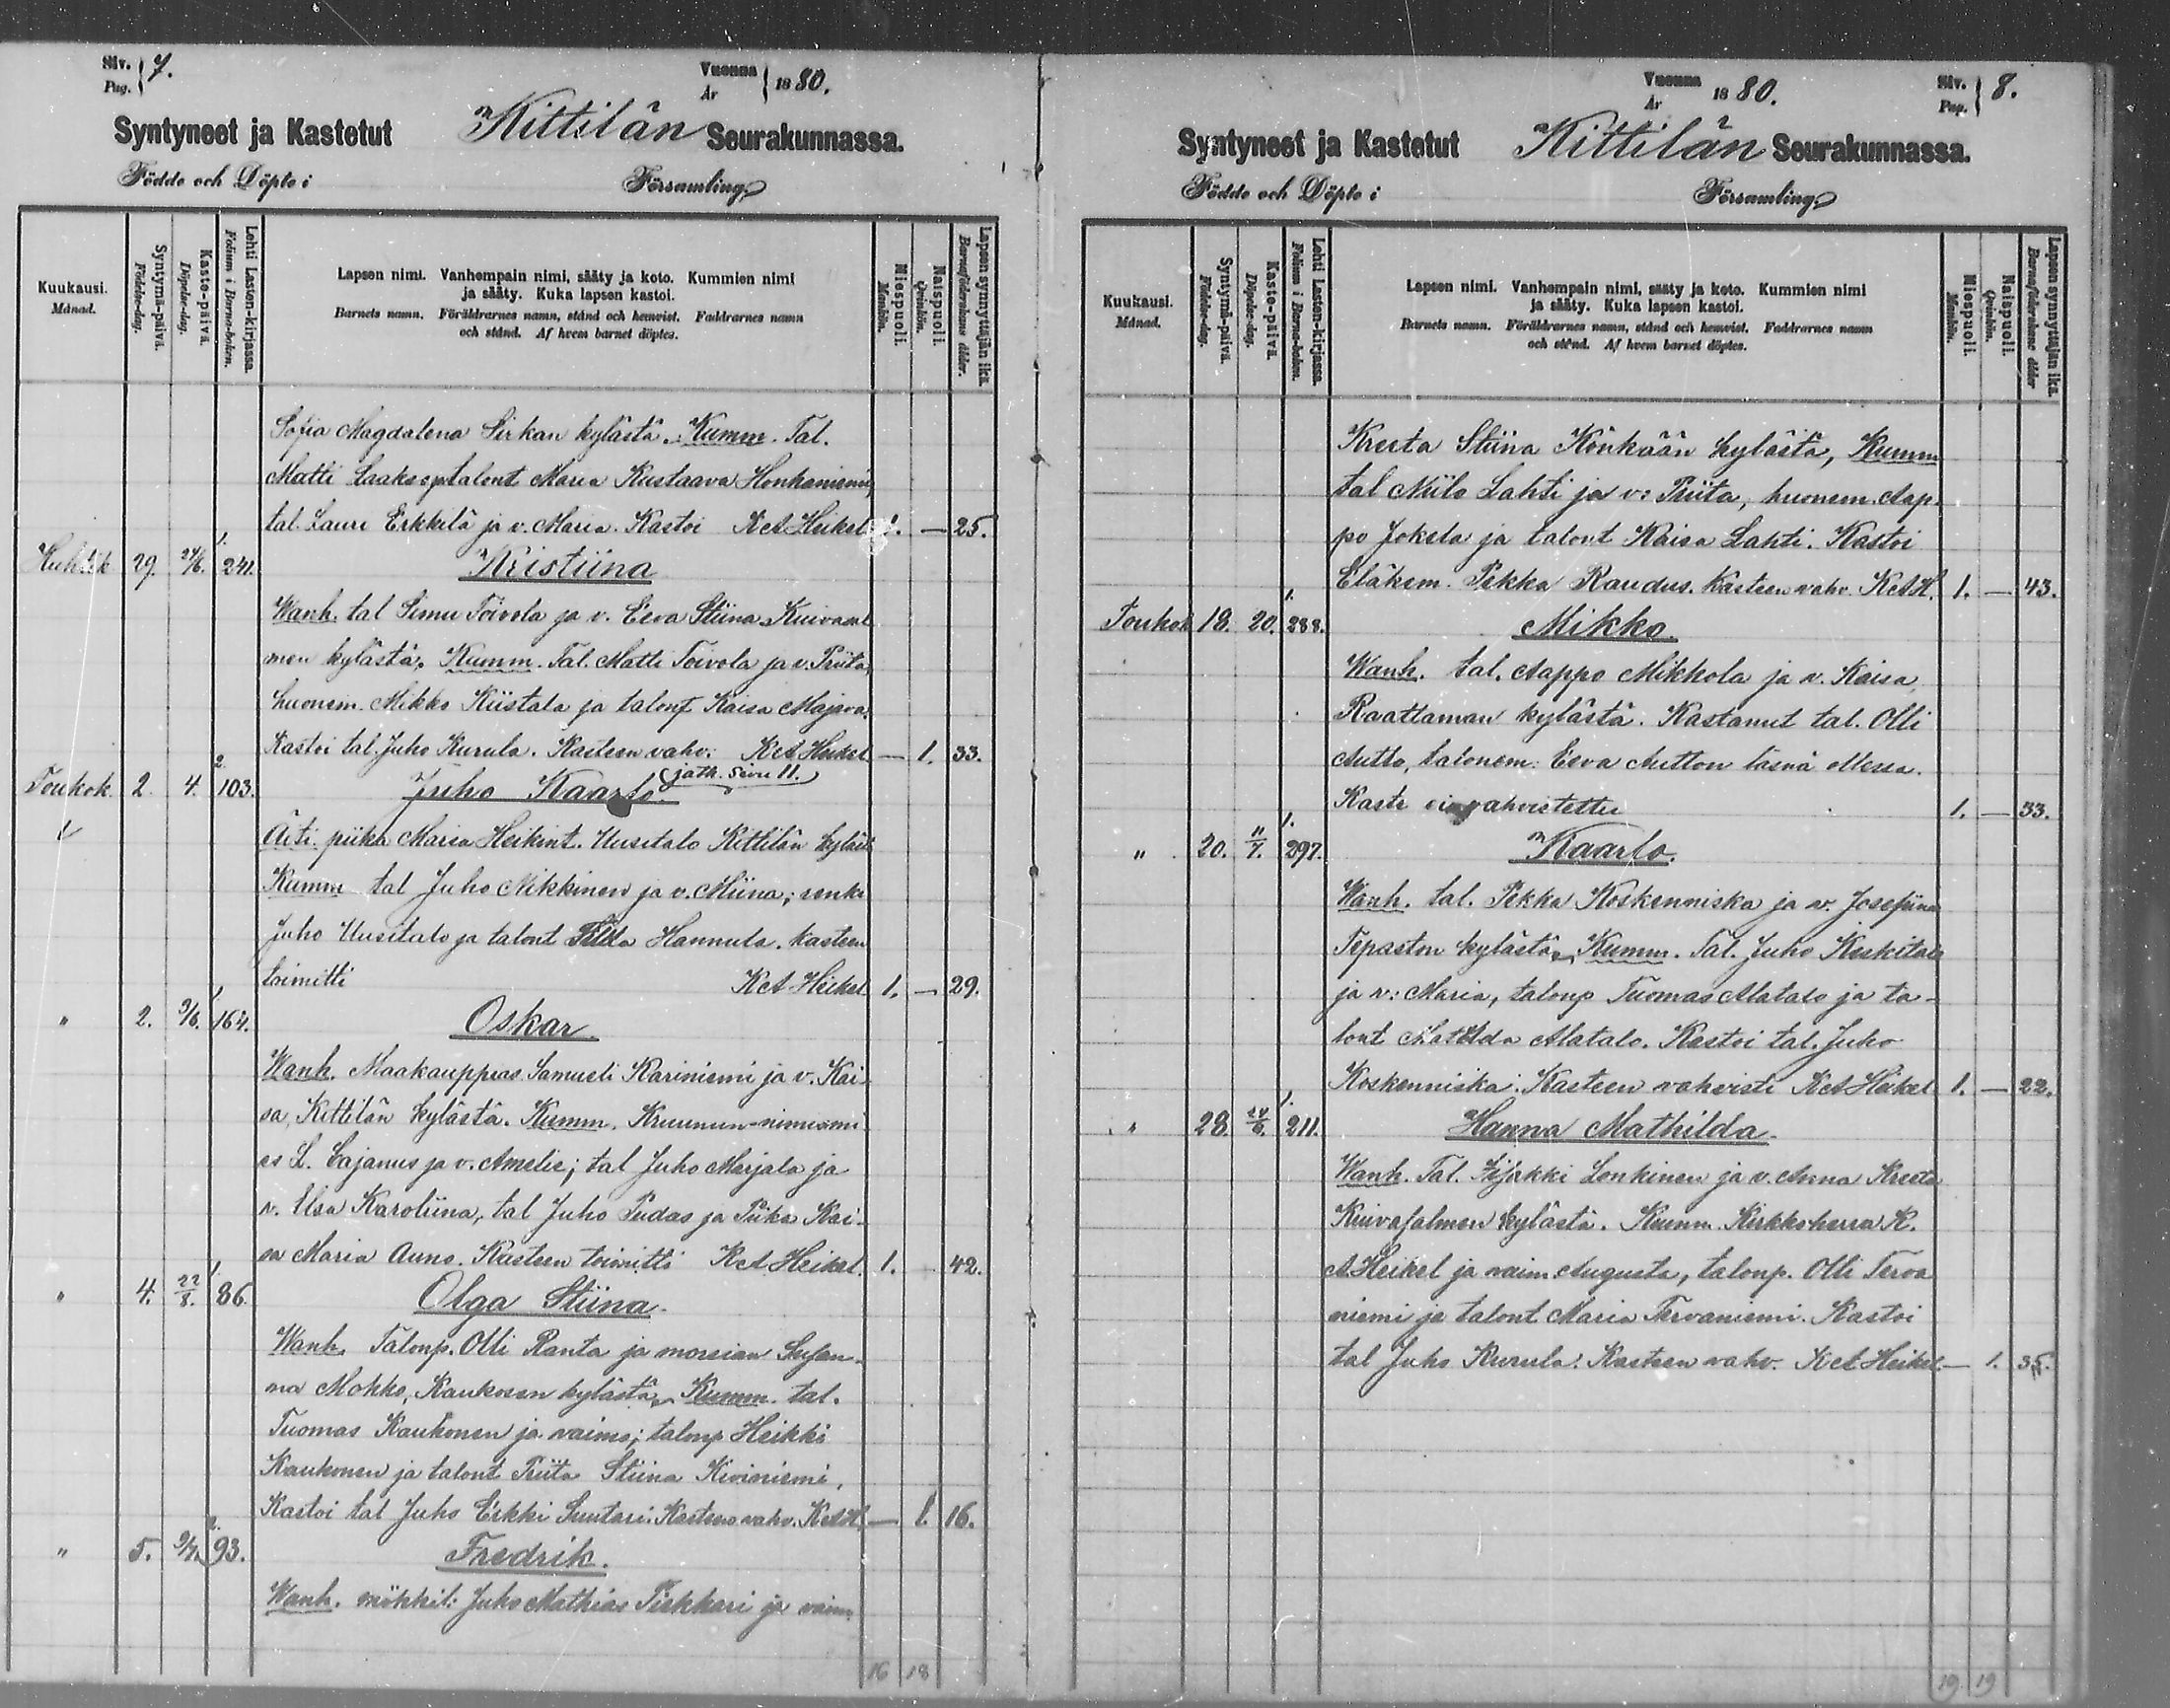 Siv. Pag. 7.
Vuonna År 1880.
Syntyneet ja Kastetut Kittilän Seurakunnassa.
Födde och Döpte i Församling
Kuukausi. Månad.
Syntymä-päivä. Födelse-dag.
Kaste-päivä. Döpelse-dag.
Lehti Lasten-kirjassa. Folium i Barna-boken.
Lapsen nimi. Vanhempain nimi, sääty ja koto. Kummien nimi
ja sääty. Kuka lapsen kastoi.
Barnets namn. Föräldrarnes namn, stånd och hemvist. Faddrarnes namn
och stånd. Af hvem barnet döptes.
Miespuoli. Mankön.
Naispuoli. Qvinkön.
Lapsen synnyttäjän ikä. Barnaföderskans ålder.
Sofia Magdalena Sirkan kylästä. Kumm. Tal.
Matti Laakso, talont Maria Kustaava Honkaniemi,
tal. Lauri Erkkilä ja v. Maria. Kastoi K A Heikel 1. — 25.
Huhtik 29. 24/6. 1. 241. Kristiina
Wanh. tal Simu Toivola ja v. Eeva Stiina Kuivasal
men kylästä. Kumm. Tal. Matti Toivola ja v. Priita,
huonem. Mikko Kiistala ja talont Kaisa Majava.
Kastoi tal. Juho Kurula. Kasteen vahv: K A Heikel — 1. 33.
Toukok. 2. 4. 2. 103. Juho Kaarlo (jatk. sivu 11.)
Äiti piika Maria Heikint. Uusitalo Kittilän kyläst
Kumm tal Juho Nikkinen ja v. Miina; renki
Juho Uusitalo ja talont Hannula. Kasteen
toimitti K A Heikel 1. — 29.
" 2. 9/6. 1. 164. Oskar
Wanh. Maakauppias Samueli Kariniemi ja v. Kai-
sa, Kittilän kylästä. Kumm. Kruunun-nimismi
es L. Cajanus ja v. Amelie; tal Juho Marjala ja
v. Elsa Karoliina, tal Juho Pudas ja Piika Kai-
sa Maria Auno. Kasteen toimitti K A Heikel. 1. 42.
" 4. 22/8. 1. 86. Olga Stiina.
Wanh. Talonp. Olli Ranta ja morsian Susan-
na Mokko, Kaukosen kylästä, Kumm. tal.
Tuomas Kaukonen ja vaimo; talonp Heikki
Kaukonen ja talont Priita Stiina Kiviniemi,
Kastoi tal Juho Erkki Suutari. Kasteen vahv. K A H. — 1. 16.
" 5. 9/7. 2. 93. Fredrik.
Wanh. mökkil: Juho Mathias Pirkkari ja vaim
16 18
Vuonna År 1880.
Siv. Pag. 8.
Syntyneet ja Kastetut Kittilän Seurakunnassa.
Födde och Döpte i Församling
Kuukausi. Månad.
Syntymä-päivä. Födelse-dag.
Kaste-päivä. Döpelse-dag.
Lehti Lasten-kirjassa. Folium i Barna-boken.
Lapsen nimi. Vanhempain nimi, sääty ja koto. Kummien nimi
ja sääty. Kuka lapsen kastoi.
Barnets namn. Föräldrarnes namn, stånd och hemvist. Faddrarnes namn
och stånd. Af hvem barnet döptes.
Miespuoli. Mankön.
Naispuoli. Qvinkön.
Lapsen synnyttäjän ikä. Barnaföderskans ålder
Kreeta Stiina Könkään kylästä, Kumm
tal Niilo Lahti ja v: Priita, huonem. Aap-
po Jokela ja talont Kaisa Lahti. Kastoi
Eläkem. Pekka Raudus. Kasteen vahv. K A H. 1. — 43.
Toukok 18. 20. 1. 288. Mikko
Wanh. tal. Aappo Mikkola ja v. Kaisa,
Raattaman kylästä. Kastanut tal. Olli
Autto, talonem: Eeva Autton läsnä ollessa.
Kaste vahvistettu 1. — 33.
" 20. 11/7. 1. 297. Kaarlo.
Wanh. tal. Pekka Koskenniska ja v. Josefiina
Tepaston kylästä, Kumm. Tal. Juho Keskitalo
ja v: Maria, talonp Tuomas Alatalo ja ta-
lont Matilda Alatalo. Kastoi tal. Juho
Koskenniska. Kasteen vahvisti K A Heikel 1. — 22.
" 28. 24/6. 1. 211. Hanna Mathilda.
Wanh. Tal. Lonkinen ja v. Anna Kreeta
Kuivasalmen kylästä. Kumm. Kirkkoherra K.
A Heikel ja vaim. Augusta, talonp. Olli Terva
niemi ja talont Maria Tervaniemi. Kastoi
tal Juho Kurula. Kasteen vahv. K A Heikel — 1. 35.
19 19